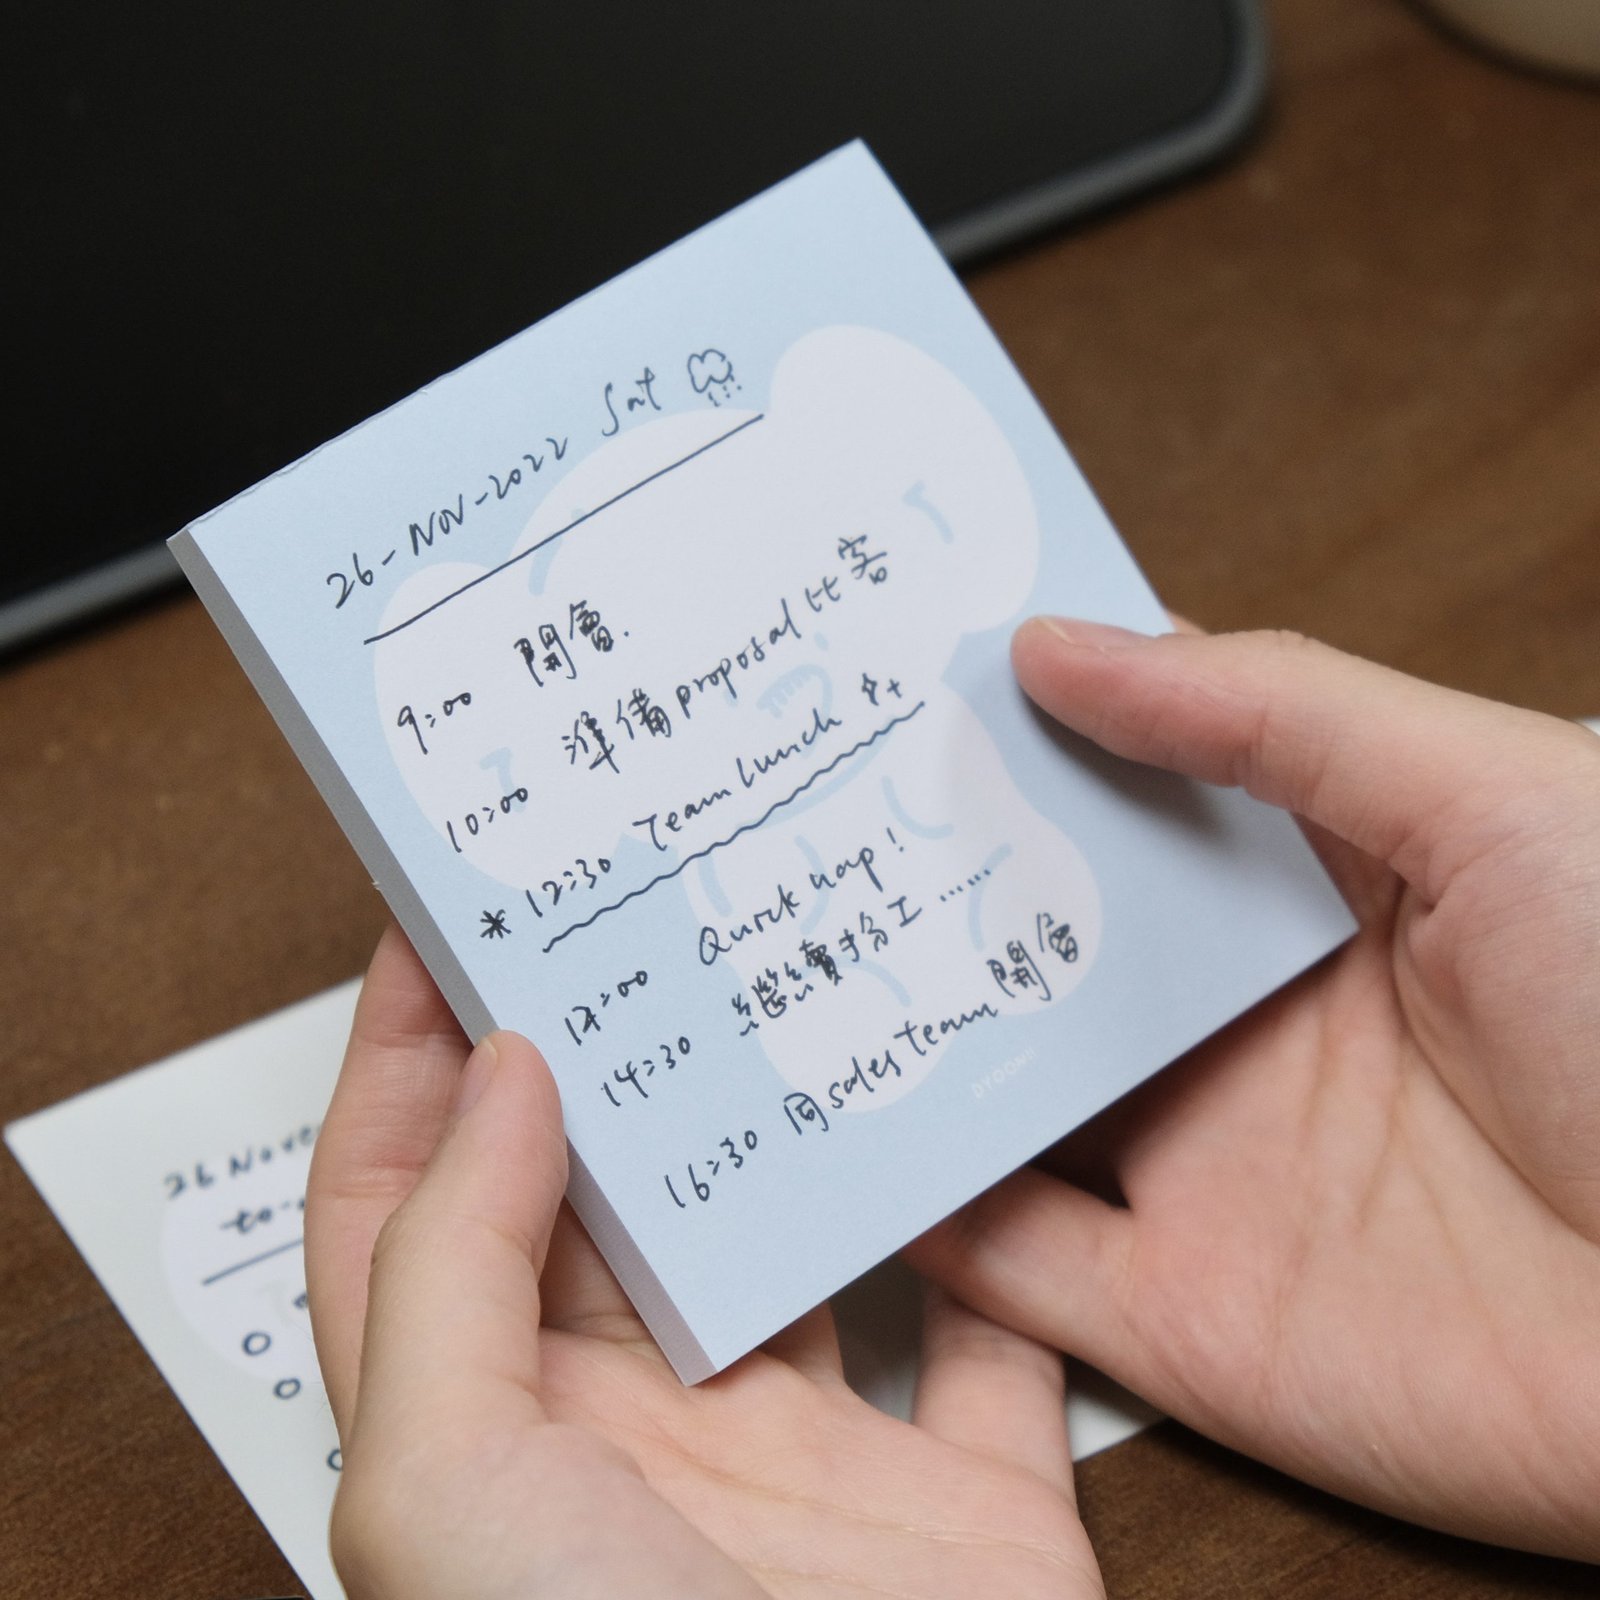 26-Nov-2022 Sat
9:00 開會.
10:00 準備proposal比客
* 12:30 Team Lunch
14:00 Quick nap!
14:30 繼續搏殺工......
16:30 同sales team開會
DYOONII
26 Nove
to-